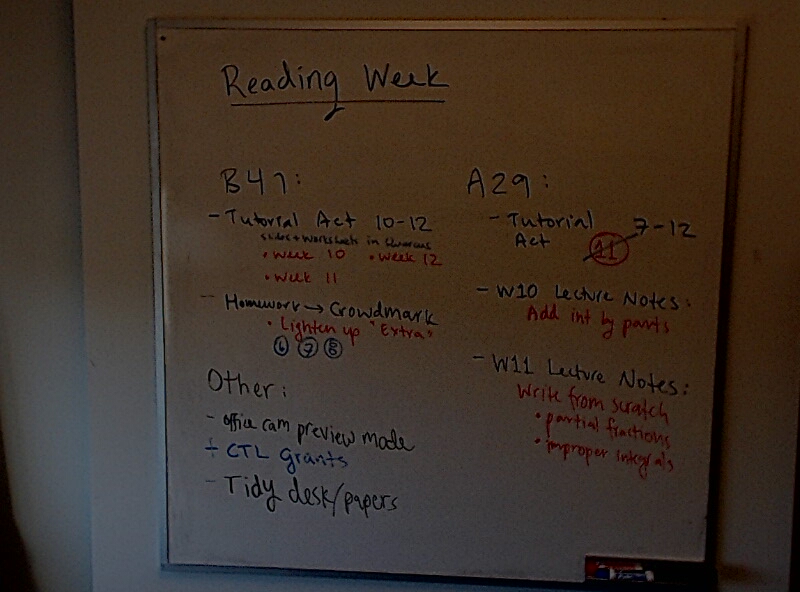 Reading Week
B41:
- Tutorial Act 10-12
Slides + Worksheets in Quercus
• Week 10 • Week 12
• Week 11
- Homework → Crowdmark
• Lighten up "Extra"
6 7 8
Other:
- office cam preview mode
+ CTL Grants
- Tidy desk/papers
A29:
- Tutorial Act 7-12
11
- W10 Lecture Notes:
Add int by parts
- W11 Lecture Notes:
Write from scratch
• partial fractions
• improper integrals